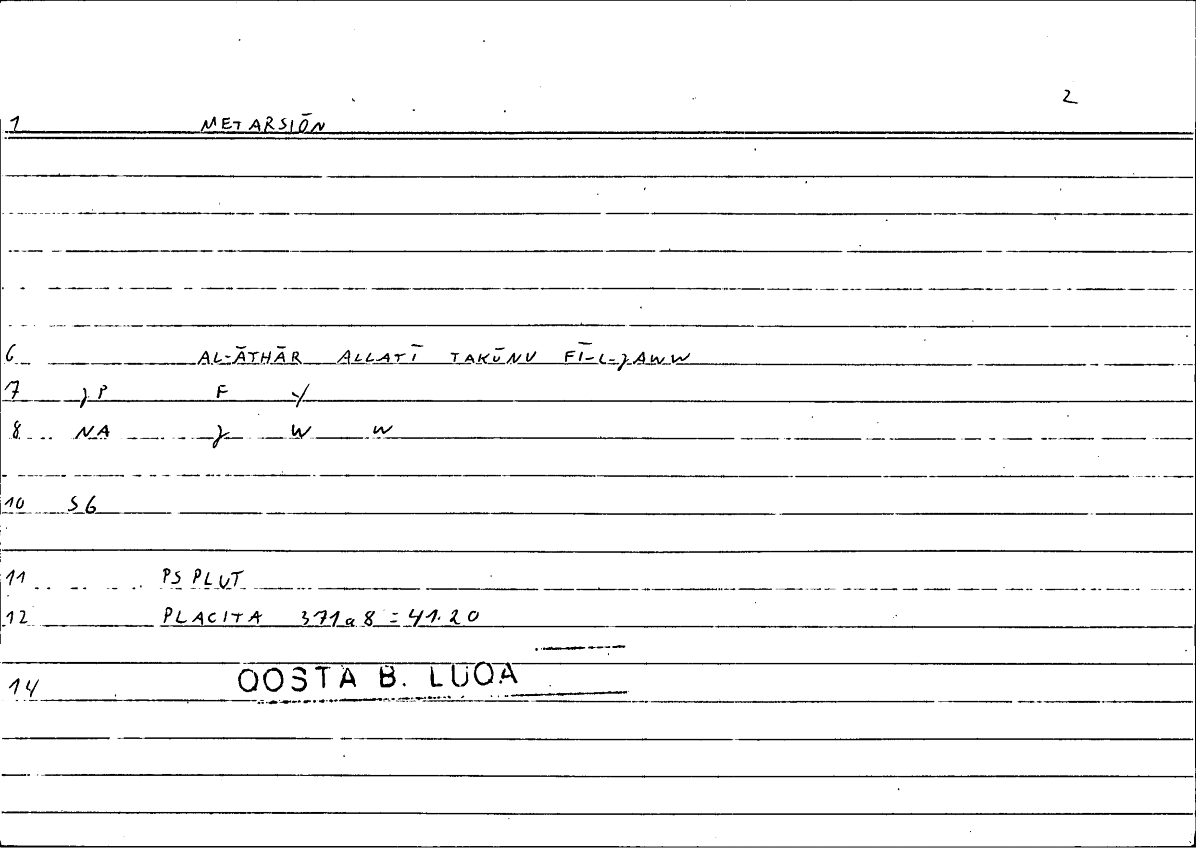 2
1 METARSIŌN
6 AL-ĀTHĀR ALLATĪ TAKŪNU FĪ-L-JAWW
7 JP F Y
8 NA J W W
10 S6
11 PS PLUT
12 PLACITA 371a8 = 41.20
14 QOSTA B. LUQA